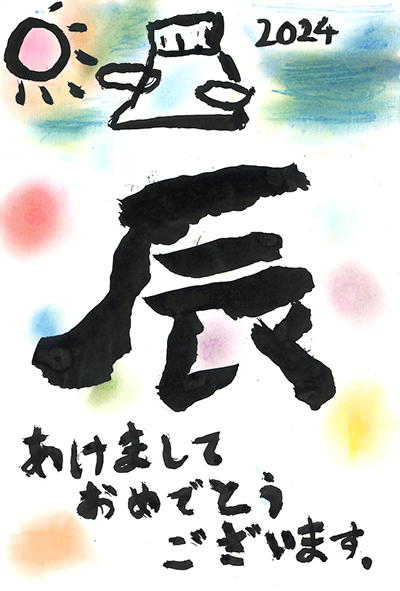 2024
辰
あけまして
おめでとう
ございます。